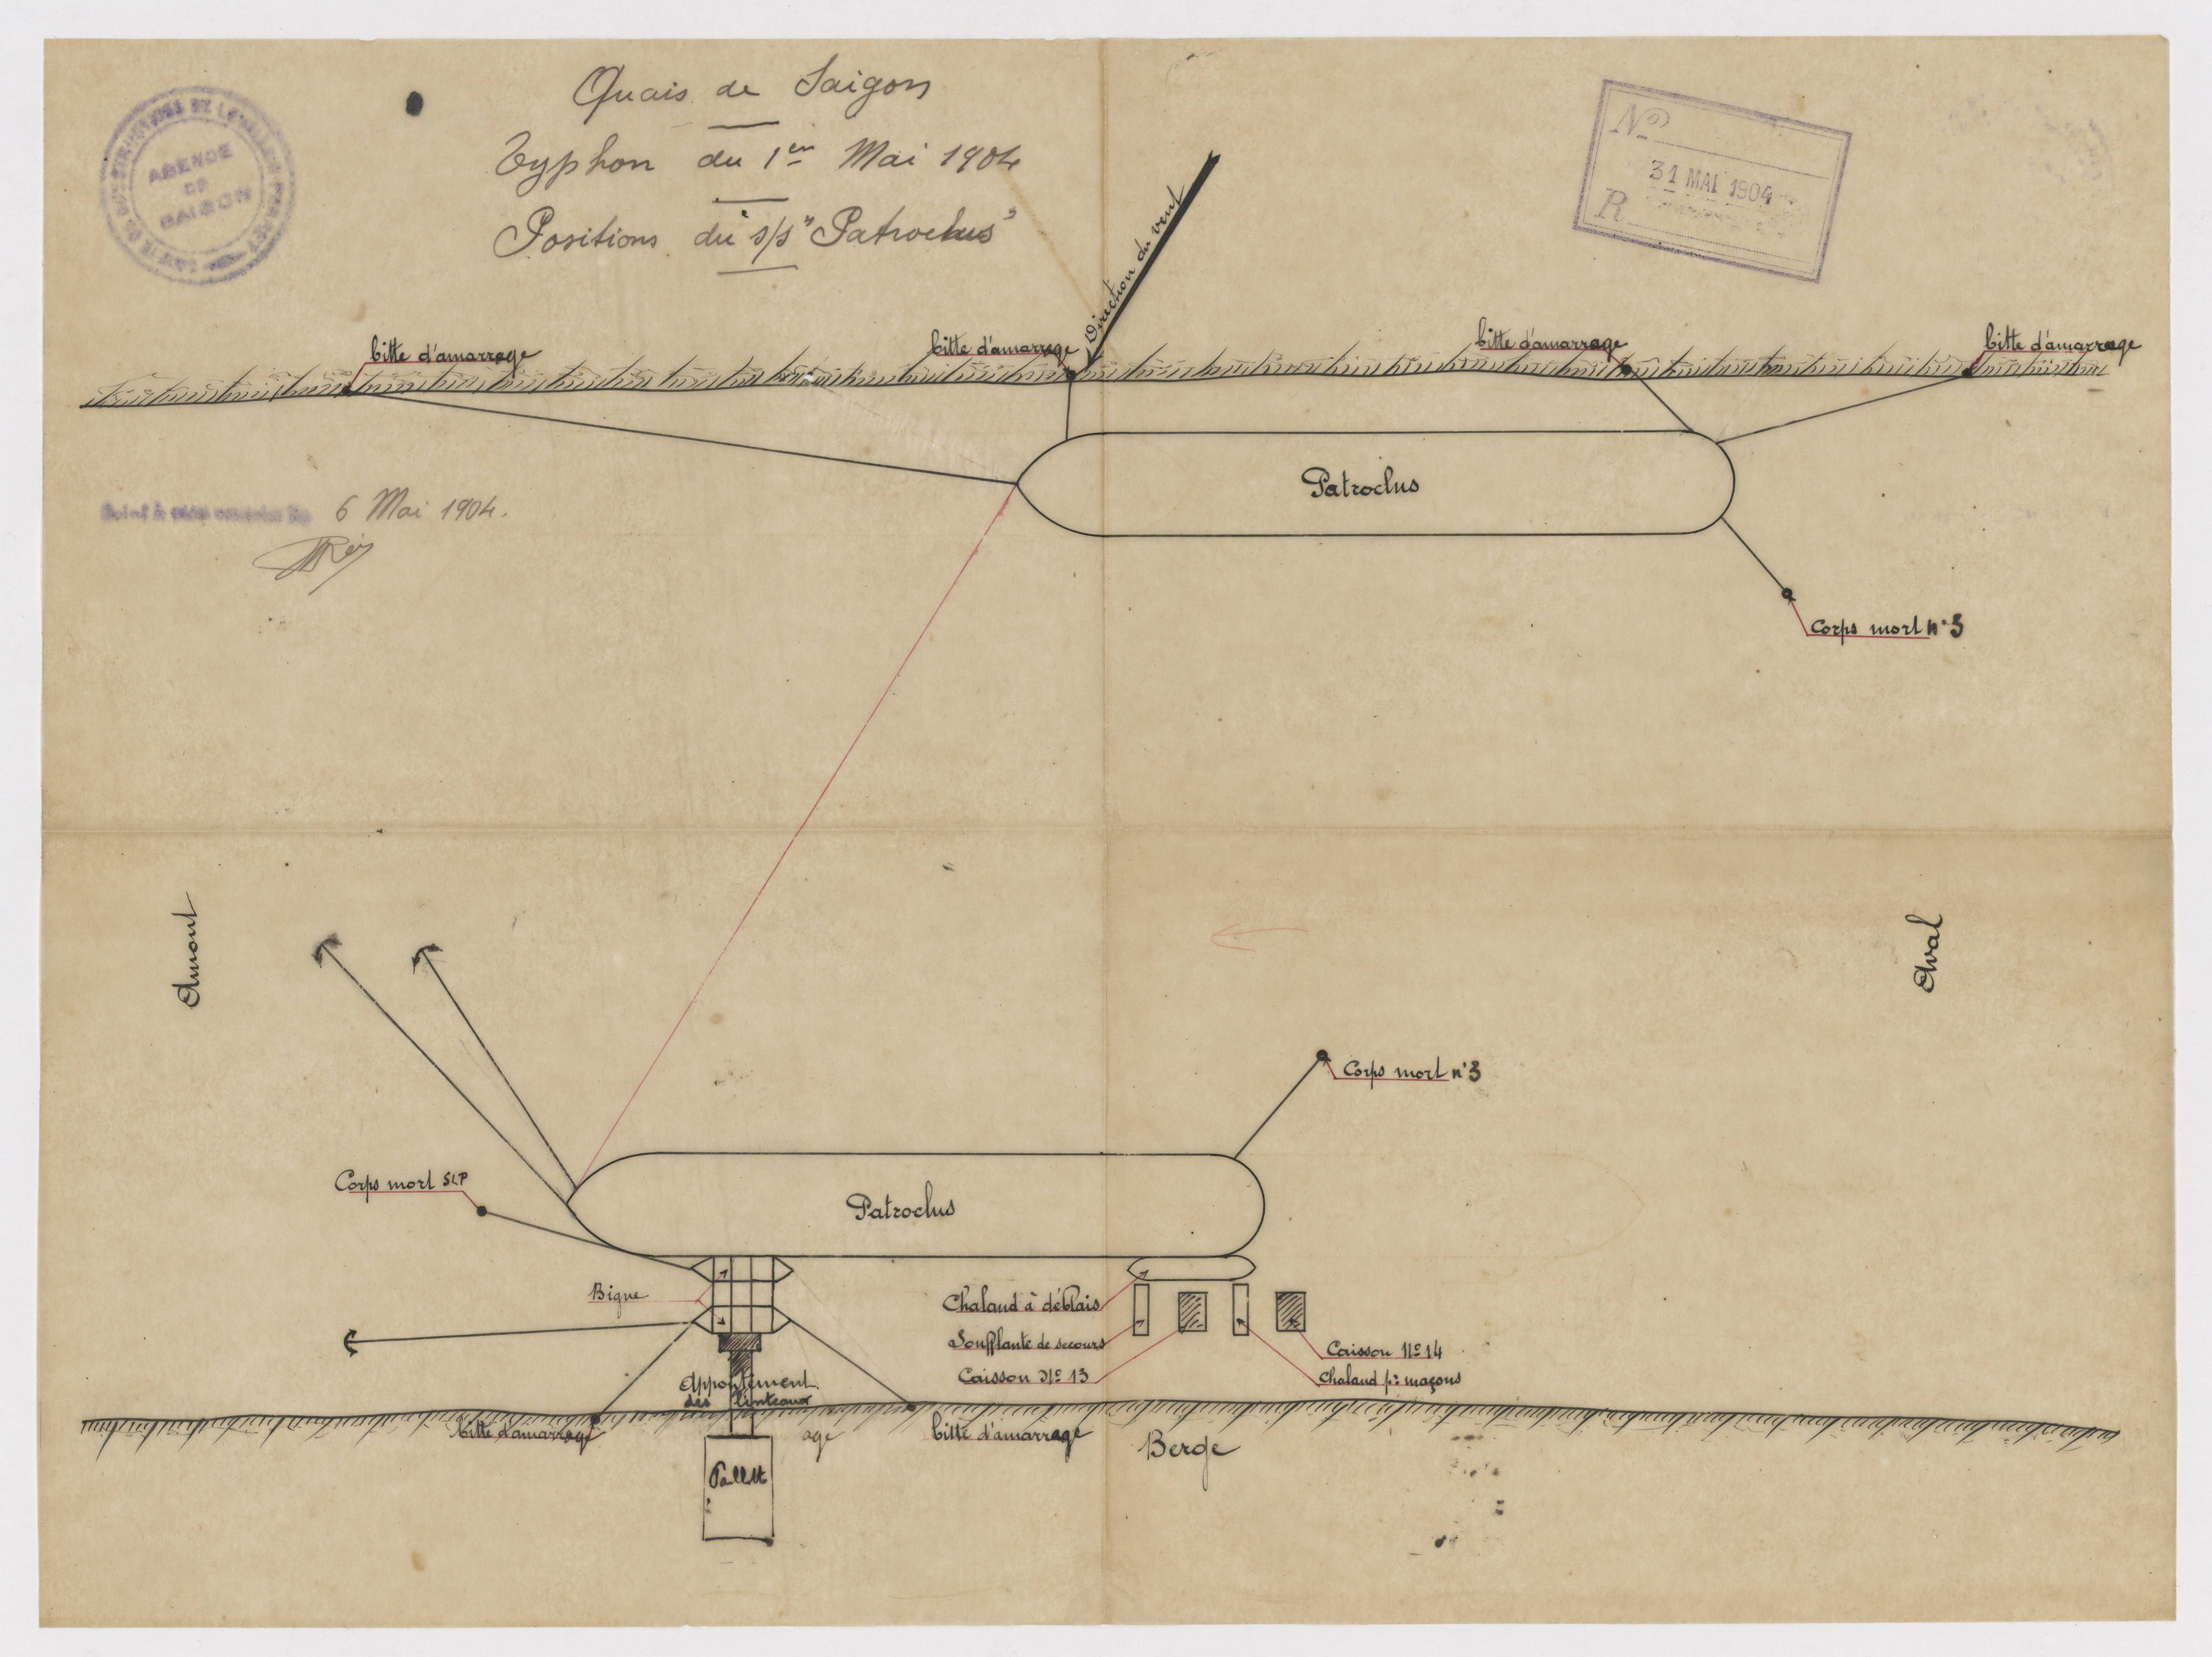 Quais de Saigon
Typhon du 1er Mai 1904
Positions du s/s "Patroclus"
AGENCE
DE
SAIGON
No
31 MAI 1904
R
Direction du vent
bitte d'amarrage
bitte d'amarrage
bitte d'amarrage
bitte d'amarrage
Patroclus
6 Mai 1904.
Corps mort n°5
Amont
Aval
Corps mort n°3
Corps mort SLP
Patroclus
Bigue
Chaland à déblais
Soufflante de secours
Caisson No 13
Caisson No 14
Chaland pr maçons
Appontement
des linteaux
bitte d'amarrage
age
bitte d'amarrage
Berge